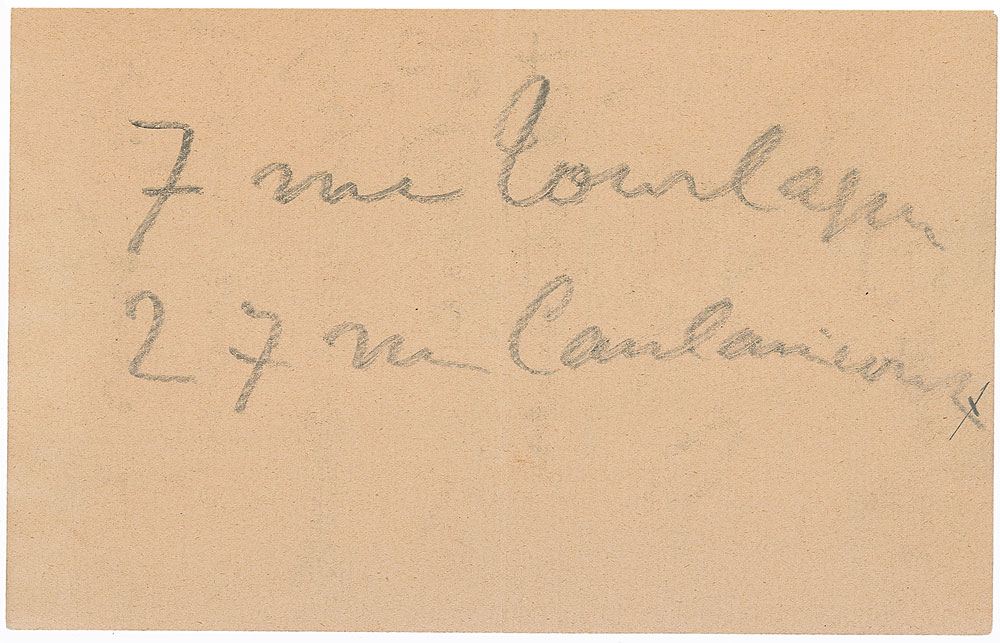 7 rue Tourlaque
27 rue Caulaincourt